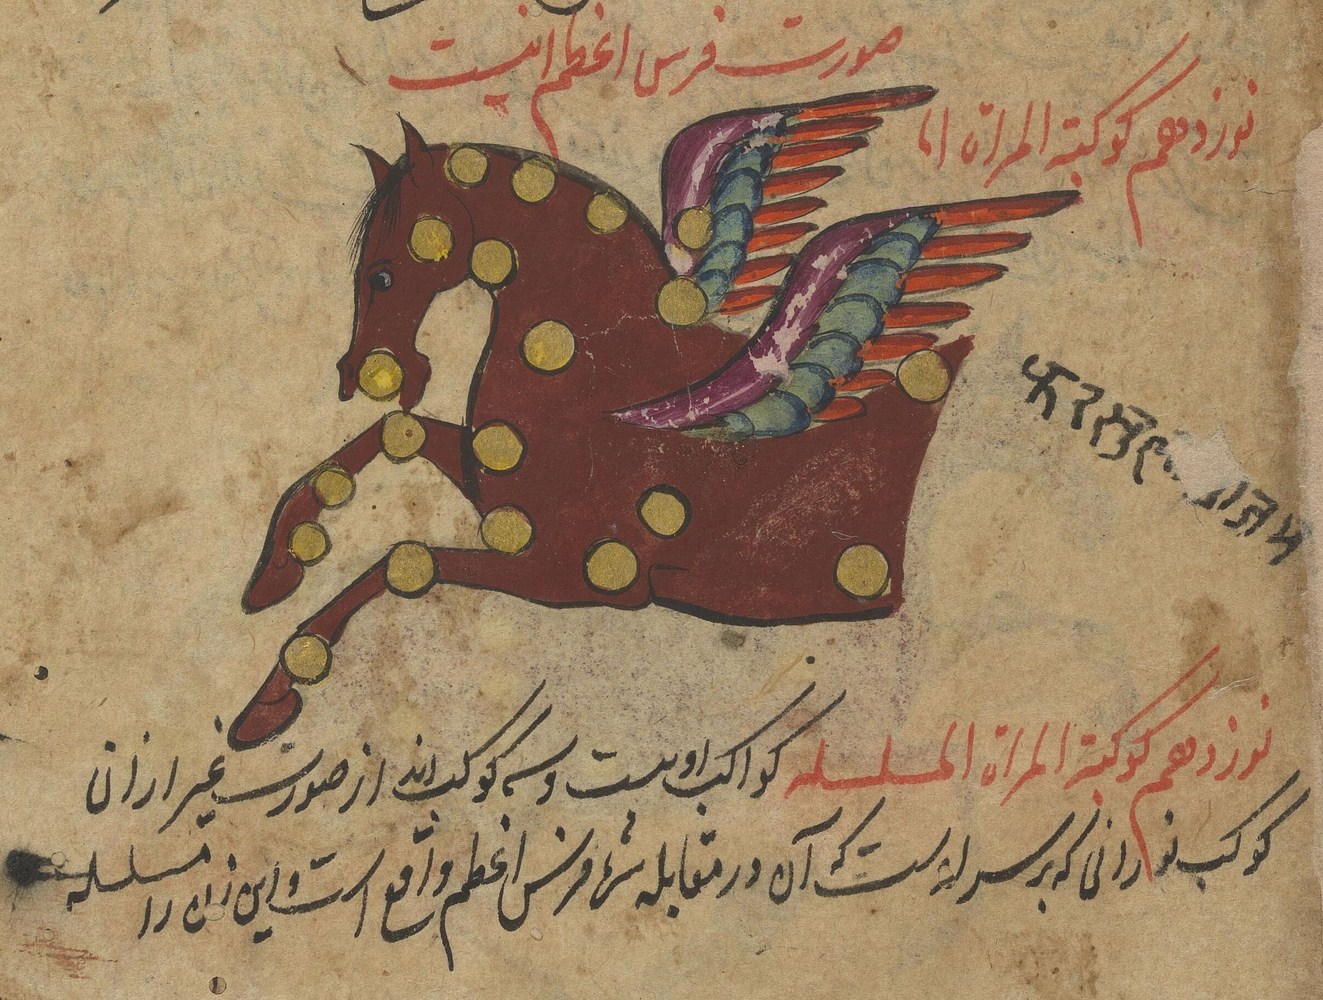 صورت فرس اعظم اینست
نوزدهم کوکبة المراة اما
نوزدهم کوکبة المراة المسلسله کواکب او بیست و سه کوکب‌اند از صورت غیر از آن
کوکب نورانی که بر سر او است که آن در مقابله سرة فرس اعظم واقع است و این زن را مسلسله